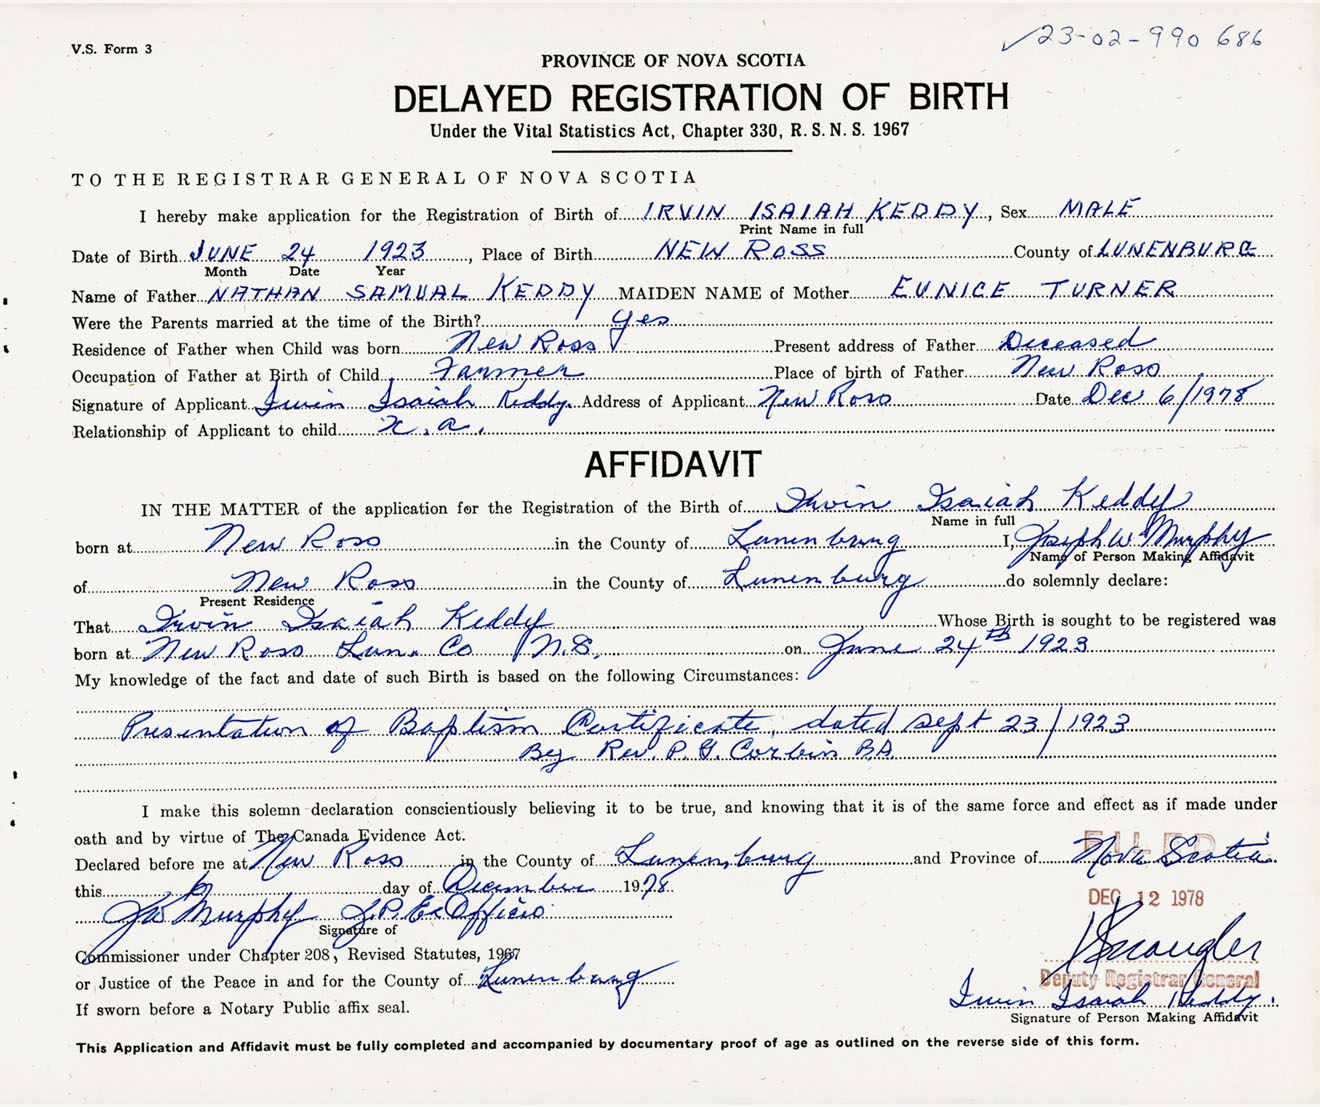 V.S. Form 3
✓23-02-990 686
PROVINCE OF NOVA SCOTIA
DELAYED REGISTRATION OF BIRTH
Under the Vital Statistics Act, Chapter 330, R.S.N.S. 1967
TO THE REGISTRAR GENERAL OF NOVA SCOTIA
I hereby make application for the Registration of Birth of IRVIN ISAIAH KEDDY, Sex MALE
Print Name in full
Date of Birth JUNE 24 1923, Place of Birth NEW ROSS County of LUNENBURG
Month Date Year
Name of Father NATHAN SAMUAL KEDDY MAIDEN NAME of Mother EUNICE TURNER
Were the Parents married at the time of the Birth? yes
Residence of Father when Child was born New Ross Present address of Father Deceased
Occupation of Father at Birth of Child Farmer Place of birth of Father New Ross
Signature of Applicant Irvin Isaiah Keddy. Address of Applicant New Ross Date Dec 6/1978
Relationship of Applicant to child n.a.
AFFIDAVIT
IN THE MATTER of the application for the Registration of the Birth of Irvin Isaiah Keddy
Name in full
born at New Ross in the County of Lunenburg I, Joseph W Murphy
Name of Person Making Affidavit
of New Ross in the County of Lunenburg do solemnly declare:
Present Residence
That Irvin Isaiah Keddy Whose Birth is sought to be registered was
born at New Ross Lun. Co N.S. on June 24th 1923
My knowledge of the fact and date of such Birth is based on the following Circumstances:
Presentation of Baptism Certificate, dated Sept 23/1923
By Rev. P.G. Corbin BA.
I make this solemn declaration conscientiously believing it to be true, and knowing that it is of the same force and effect as if made under
oath and by virtue of The Canada Evidence Act.
Declared before me at New Ross in the County of Lunenburg and Province of Nova Scotia
FILED
this day of December 1978.
DEC 12 1978
JW Murphy J.P. Ex Officio
Signature of
Commissioner under Chapter 208, Revised Statutes, 1967
Deputy Registrar General
or Justice of the Peace in and for the County of Lunenburg
Irvin Isaiah Keddy.
If sworn before a Notary Public affix seal.
Signature of Person Making Affidavit
This Application and Affidavit must be fully completed and accompanied by documentary proof of age as outlined on the reverse side of this form.